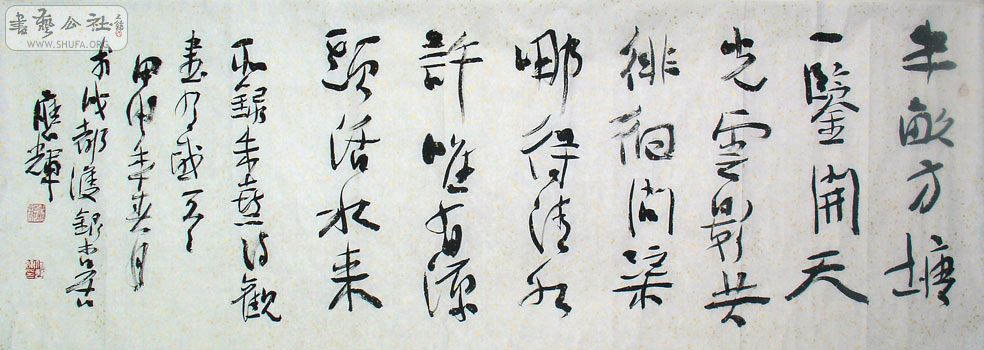 書藝公社
WWW.SHUFA.ORG
半畝方塘
一鑒開天
光雲影共
徘徊問渠
哪得清如
許唯有源
頭活水来
錄朱熹诗觀
書有感一首
甲申年春月
於成都銀杏居
應輝